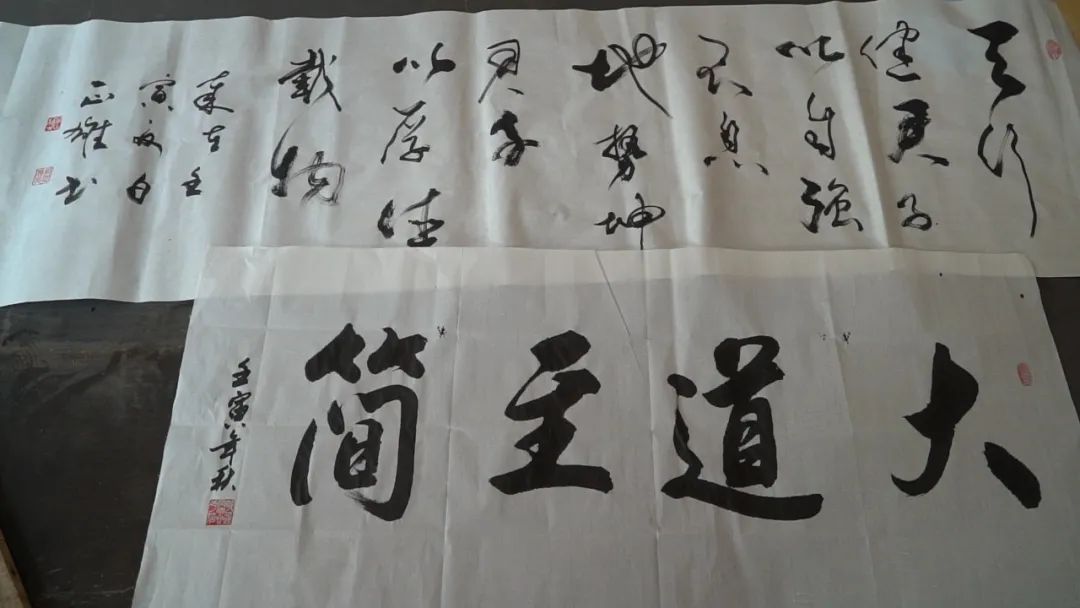 天行
健君子
以自强
不息
地勢坤
君子
以厚德
載物
壬
寅 白
正雄书
大道至简
壬寅年秋